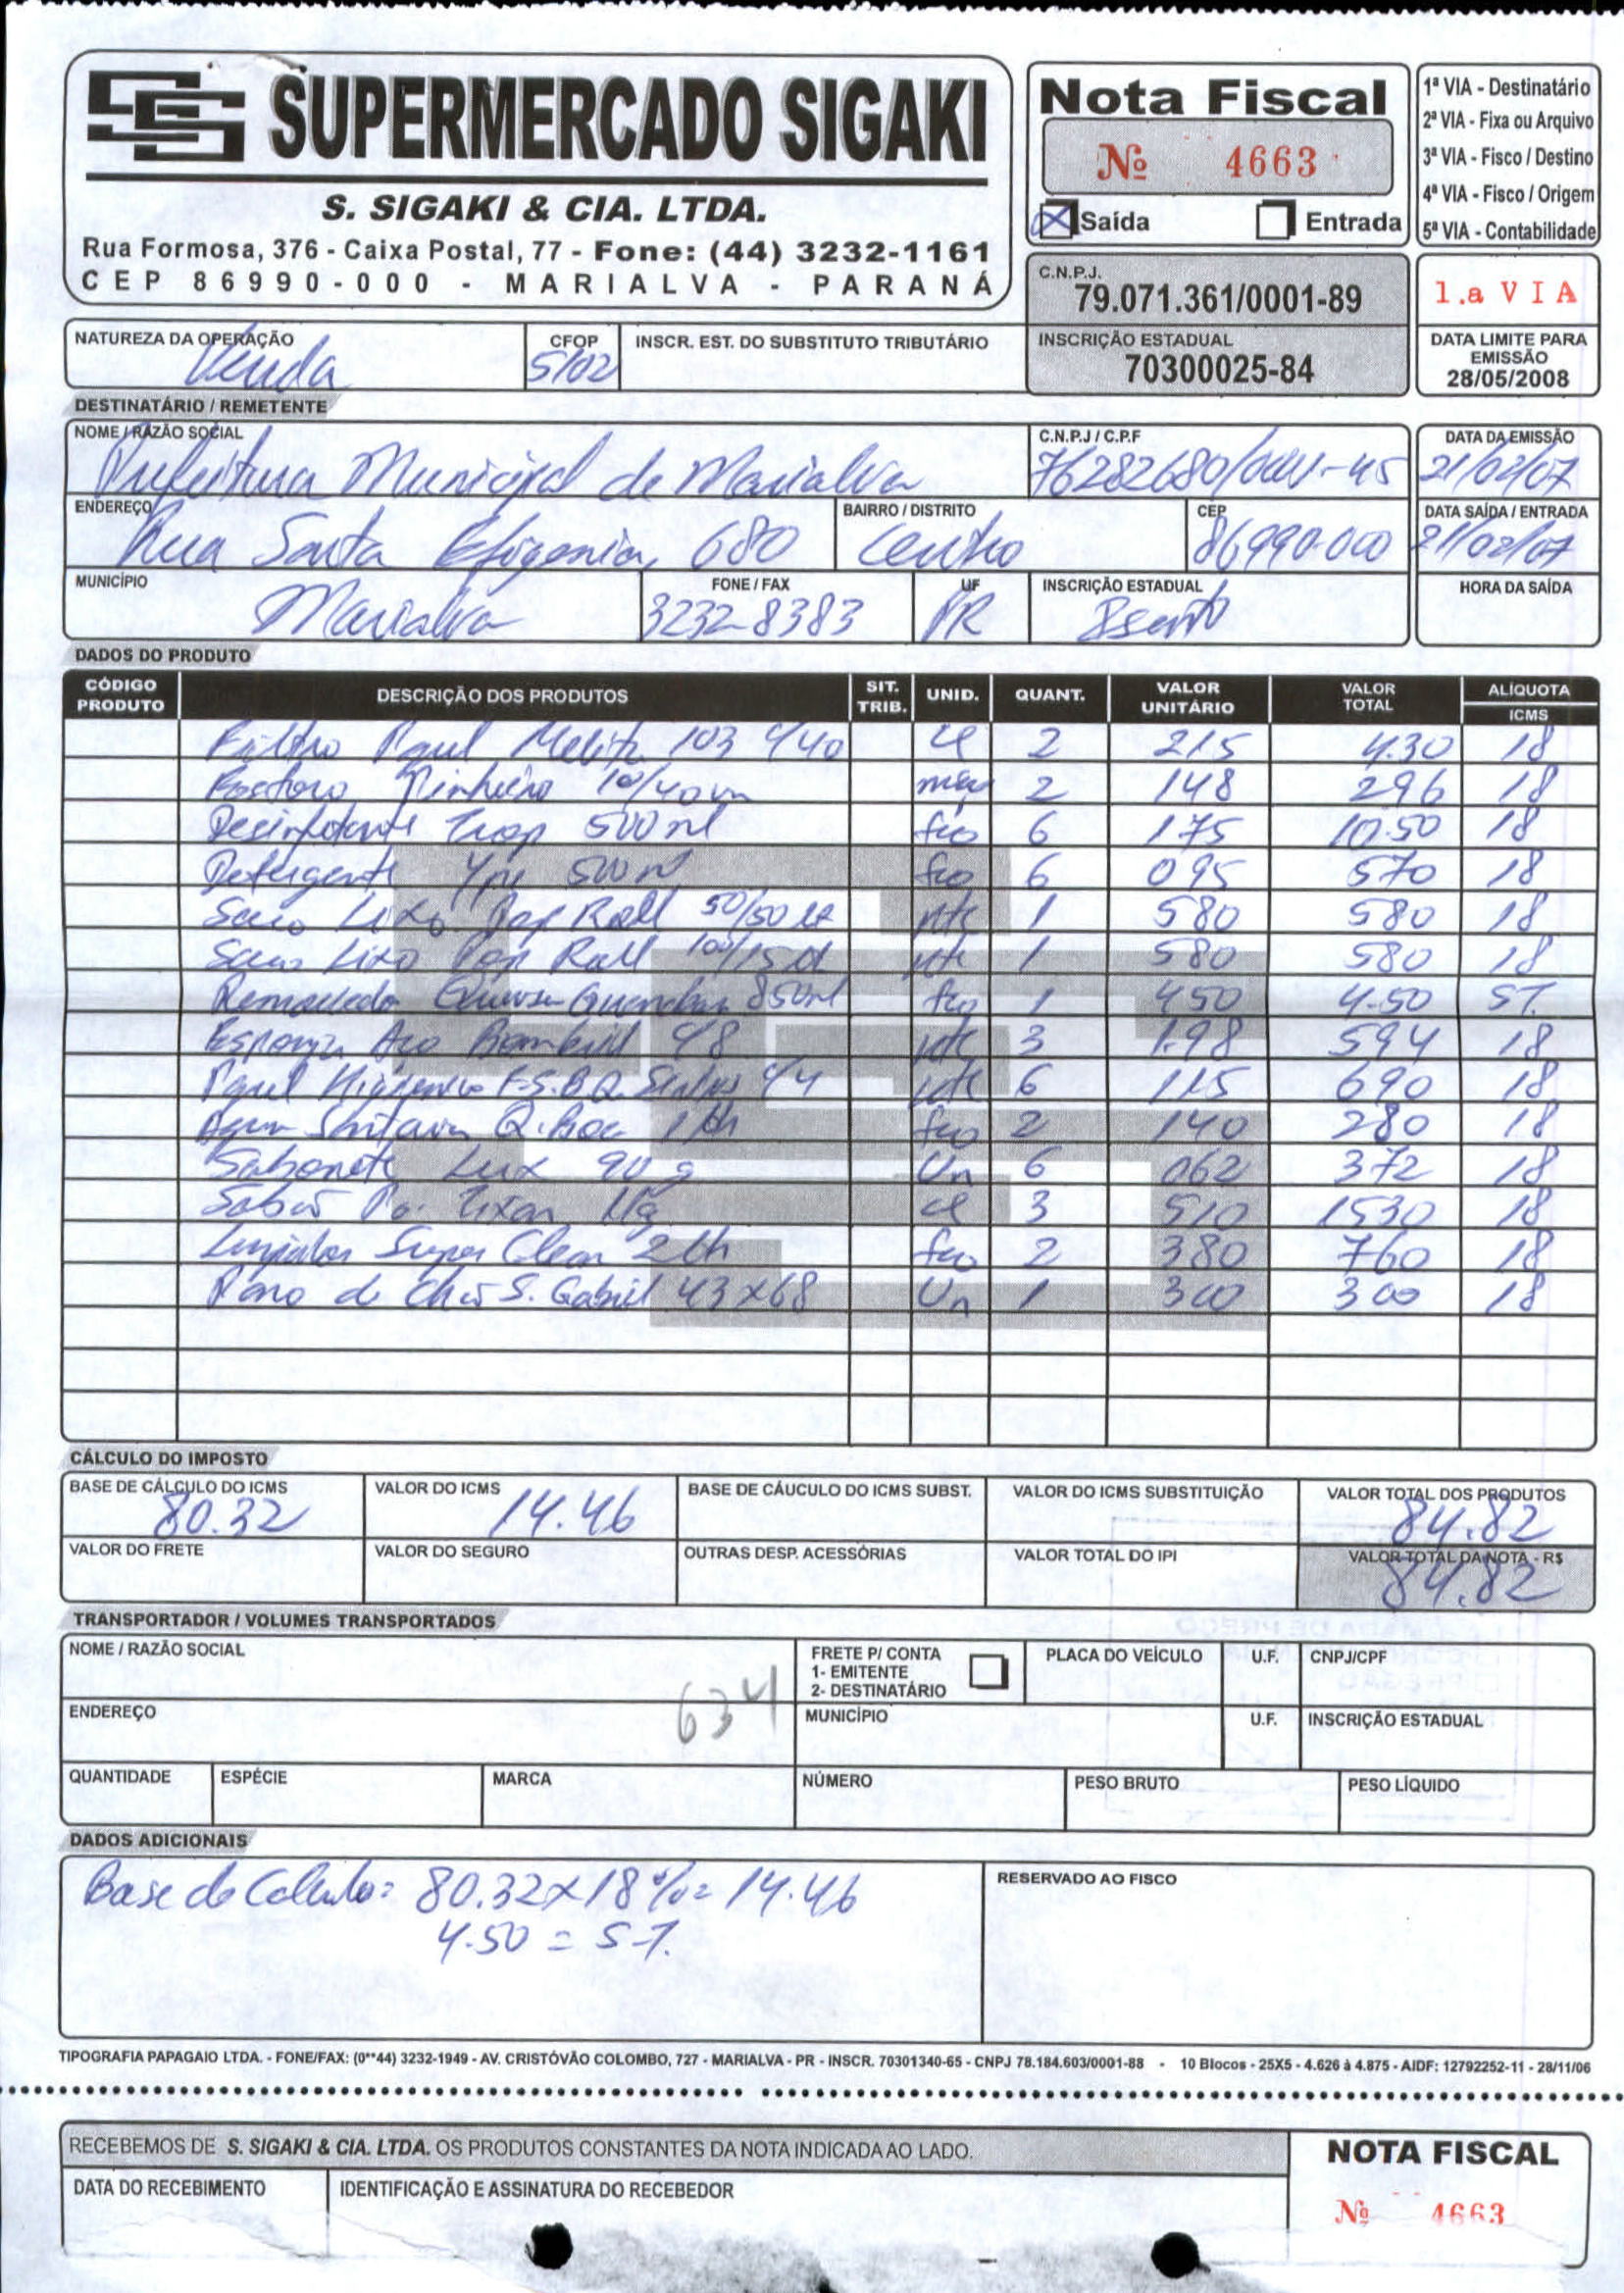 SUPERMERCADO SIGAKI
S. SIGAKI & CIA. LTDA.
Rua Formosa, 376 - Caixa Postal, 77 - Fone: (44) 3232-1161
CEP 86990-000 - MARIALVA - PARANÁ
Nota Fiscal
Nº 4663
Saída Entrada
1ª VIA - Destinatário
2ª VIA - Fixa ou Arquivo
3ª VIA - Fisco / Destino
4ª VIA - Fisco / Origem
5ª VIA - Contabilidade
C.N.P.J.
79.071.361/0001-89
1.a VIA
NATUREZA DA OPERAÇÃO CFOP INSCR. EST. DO SUBSTITUTO TRIBUTÁRIO
Venda 5102
INSCRIÇÃO ESTADUAL
70300025-84
DATA LIMITE PARA
EMISSÃO
28/05/2008
DESTINATÁRIO / REMETENTE
NOME / RAZÃO SOCIAL C.N.P.J / C.P.F DATA DA EMISSÃO
Prefeitura Municipal de Marialva 76282680/0001-45 21/02/07
ENDEREÇO BAIRRO / DISTRITO CEP DATA SAÍDA / ENTRADA
Rua Santa Efigenia, 680 Centro 86990-000 21/02/07
MUNICÍPIO FONE / FAX UF INSCRIÇÃO ESTADUAL HORA DA SAÍDA
Marialva 3232-8383 PR Isento
DADOS DO PRODUTO
CÓDIGO PRODUTO DESCRIÇÃO DOS PRODUTOS SIT. TRIB. UNID. QUANT. VALOR UNITÁRIO VALOR TOTAL ALÍQUOTA ICMS
Filtro Papel Melita 103 c/40 2 215 4.30 18
Fosforo Pinheiro 10/40un 2 148 296 18
Desinfetante 500ml fco 6 175 10.50 18
Detergente Ype 500ml fco 6 095 570 18
Saco Lixo Roll 50/50 lt pte 1 580 580 18
Saco Lixo Roll 100/15 lt pte 1 580 580 18
850ml fco 1 450 4.50 ST.
Esponja Aço Bombril c/8 pte 3 1.98 594 18
Papel Higienico c/4 pte 6 115 690 18
Agua Sanitaria Q.Boa 1 lth fco 2 140 280 18
Sabonete Lux 90 g Un 6 062 372 18
Sabão Po. Tixan 1kg 3 510 1530 18
Limpador Super Clean 2 lth fco 2 380 760 18
Pano de Chão S. Gabriel 43x68 Un 1 300 300 18
CÁLCULO DO IMPOSTO
BASE DE CÁLCULO DO ICMS VALOR DO ICMS BASE DE CÁUCULO DO ICMS SUBST. VALOR DO ICMS SUBSTITUIÇÃO VALOR TOTAL DOS PRODUTOS
80.32 14.46 84.82
VALOR DO FRETE VALOR DO SEGURO OUTRAS DESP. ACESSÓRIAS VALOR TOTAL DO IPI VALOR TOTAL DA NOTA - R$
84.82
TRANSPORTADOR / VOLUMES TRANSPORTADOS
NOME / RAZÃO SOCIAL FRETE P/ CONTA PLACA DO VEÍCULO U.F. CNPJ/CPF
1- EMITENTE
2- DESTINATÁRIO
634
ENDEREÇO MUNICÍPIO U.F. INSCRIÇÃO ESTADUAL
QUANTIDADE ESPÉCIE MARCA NÚMERO PESO BRUTO PESO LÍQUIDO
DADOS ADICIONAIS
Base de Calculo= 80.32x18%= 14.46
4.50 = S-T.
RESERVADO AO FISCO
TIPOGRAFIA PAPAGAIO LTDA. - FONE/FAX: (0**44) 3232-1949 - AV. CRISTÓVÃO COLOMBO, 727 - MARIALVA - PR - INSCR. 70301340-65 - CNPJ 78.184.603/0001-88 - 10 Blocos - 25X5 - 4.626 à 4.875 - AIDF: 12792252-11 - 28/11/06
RECEBEMOS DE S. SIGAKI & CIA. LTDA. OS PRODUTOS CONSTANTES DA NOTA INDICADA AO LADO.
DATA DO RECEBIMENTO IDENTIFICAÇÃO E ASSINATURA DO RECEBEDOR
NOTA FISCAL
Nº 4663